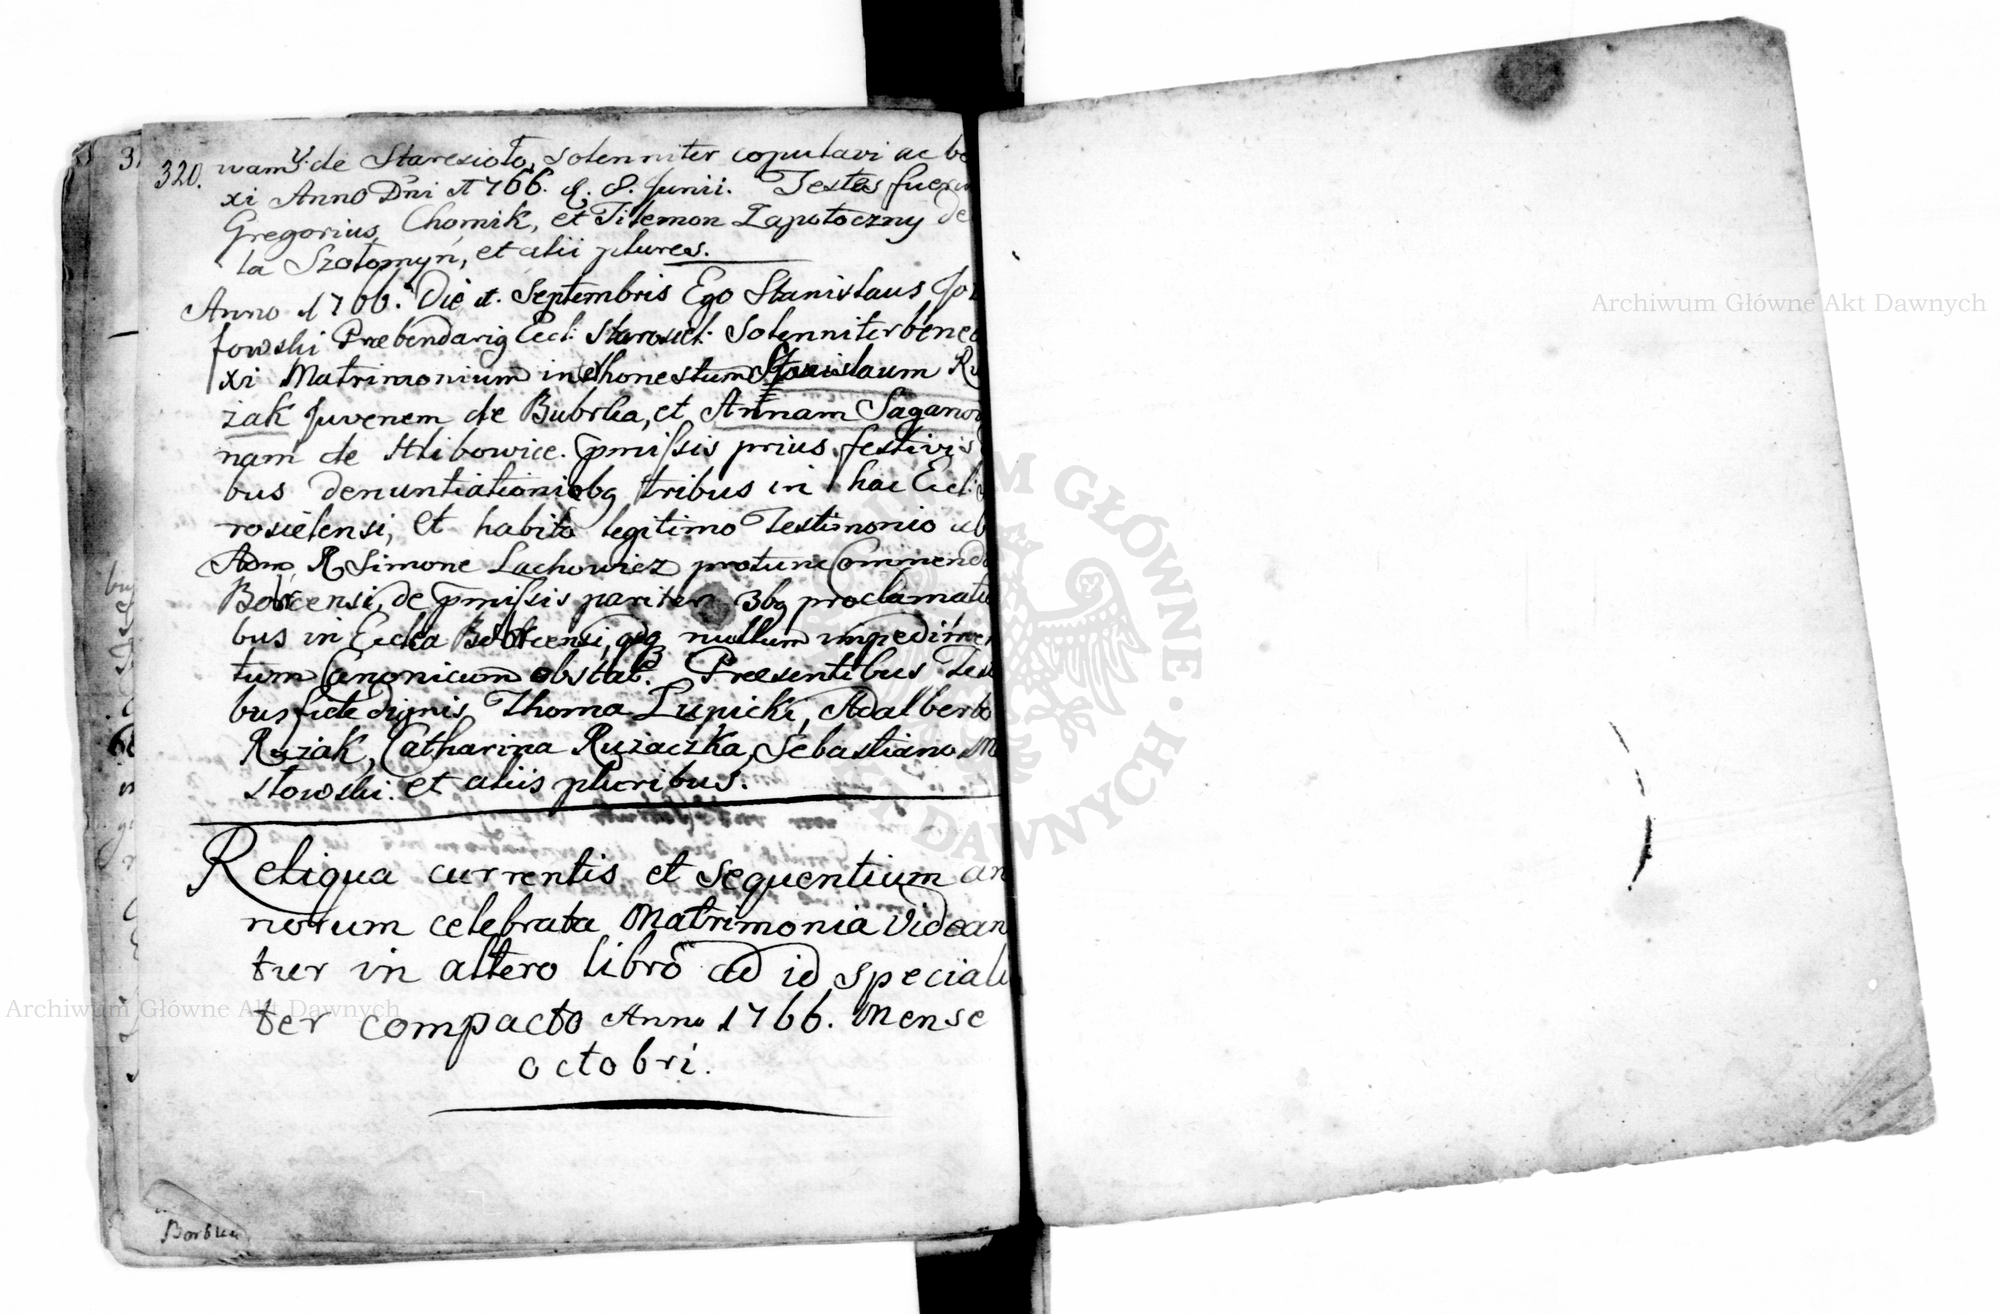 320. wam de Staresioło, Solenniter copulavi ac be
xi Anno Dni 1766. d. 8. Junii. Testes fuer
Gregorius Chomik, et Filemon Zapotoczny de
la Szołomyń, et alii plures.
Anno 1766. Die 1. Septembris Ego Stanislaus Jo
fowski Prebendarig Eccl: Starosiel: Solenniter bene
xi Matrimonium int Honestum Stanislaum Ru
zak Juvenem de Bubrka, et Annam Saganow
nam de Hlibowice. pmissis prius festivis
bus denuntiationibg tribus in hac Eccl:
rosielensi, et habito legitimo Testimonio ab
Adm R Simone Lachowicz protunc Commenda
Bobrcensi, de pmissis pariter 3bg proclamatio
bus in Eccla Bobrcensi, nullum impedimen
tum Canonicum obstat. Praesentibus Testi
bus fide dignis, Thoma Lupicki, Adalberto
Ruzak, Catharina Ruzaczka, Sebastiano M
stowski. et aliis pluribus.
Reliqua currentis et sequentium an
norum celebrata Matrimonia Videan
tur in altero libro ad id speciali
ter compacto Anno 1766. Mense
octobri.
Archiwum Główne Akt Dawnych
Archiwum Główne Akt Dawnych
ARCHIWUM GŁÓWNE AKT DAWNYCH